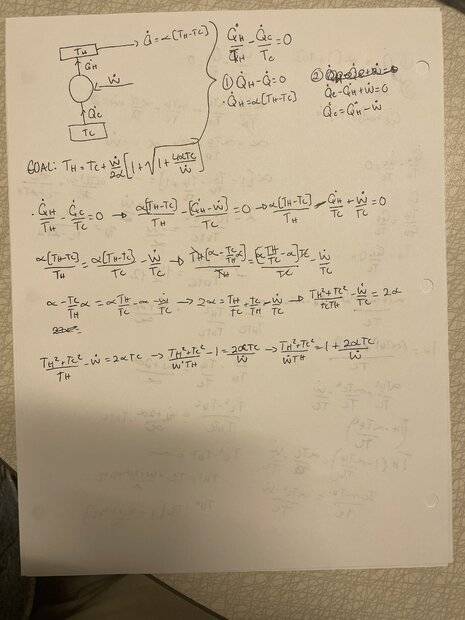 TH → Q̇ = α[TH-TC]
↑ Q̇H
← Ẇ
↑ Q̇C
TC
Q̇H/TH - Q̇C/TC = 0
① Q̇H - Q̇ = 0
· Q̇H = α[TH-TC]
②
Q̇C - Q̇H + Ẇ = 0
Q̇C = Q̇H - Ẇ
GOAL: TH = TC + Ẇ/2α [1 + √(1 + 4αTC/Ẇ)]
· Q̇H/TH - Q̇C/TC = 0 → α[TH-TC]/TH - [Q̇H-Ẇ]/TC = 0 → α[TH-TC]/TH - Q̇H/TC + Ẇ/TC = 0
α[TH-TC]/TH = α[TH-TC]/TC - Ẇ/TC → TH[α - TC/TH α]/TH = [α TH/TC - α]TC/TC - Ẇ/TC
α - TC/TH α = α TH/TC - α - Ẇ/TC → 2α = TH/TC + TC/TH - Ẇ/TC → TH² + TC²/TCTH - Ẇ/TC = 2α
TH² + TC²/TH - Ẇ = 2αTC → TH² + TC²/ẆTH - 1 = 2αTC/Ẇ → TH² + TC²/ẆTH = 1 + 2αTC/Ẇ